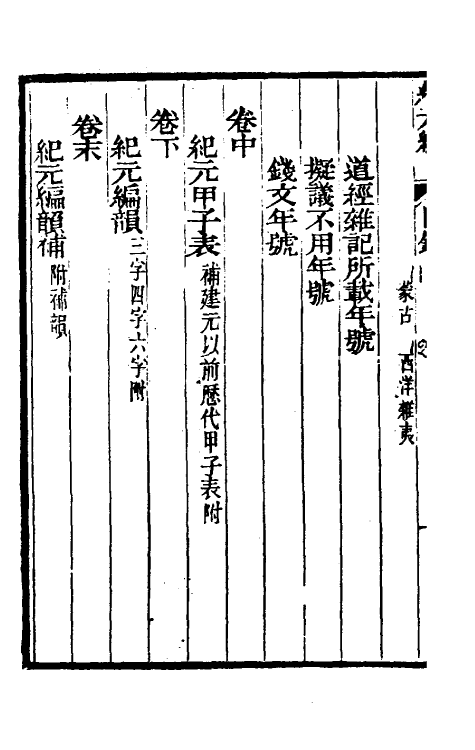 蒙古　西洋雜夷
道經雜記所載年號
擬議不用年號
錢文年號
卷中
紀元甲子表補建元以前歷代甲子表附
卷下
紀元編韻三字四字六字附
卷末
紀元編韻補附補韻